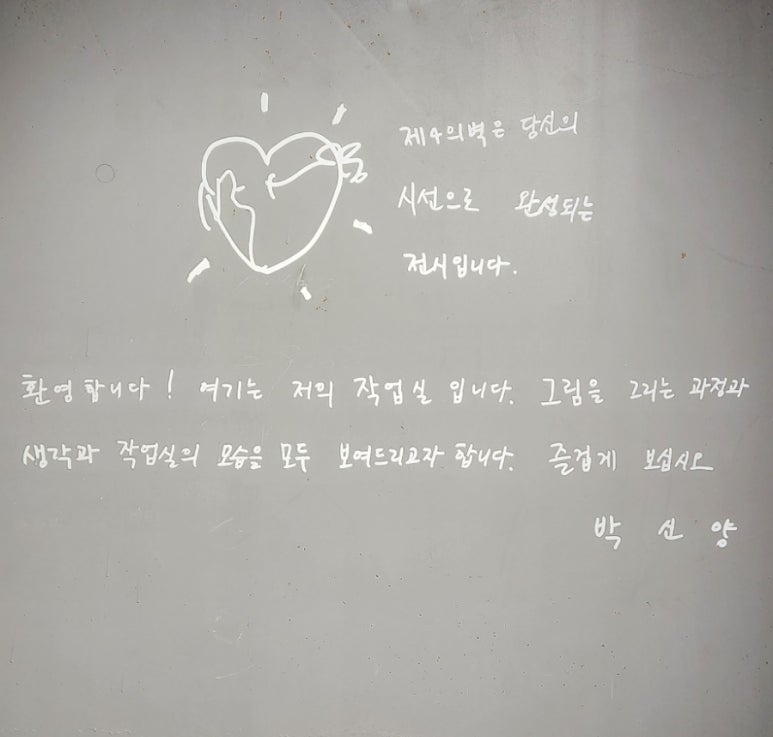 제4의벽은 당신의
시선으로 완성되는
전시입니다.
환영합니다! 여기는 저의 작업실 입니다. 그림을 그리는 과정과
생각과 작업실의 모습을 모두 보여드리고자 합니다. 즐겁게 보십시오
박 신 양